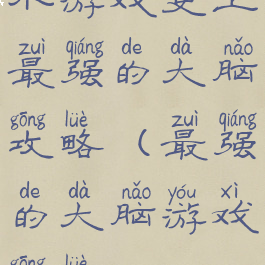 游戏要上
zuì qiáng de dà nǎo
最强的大脑
gōng lüè zuì qiáng
攻略（最强
de dà nǎo yóu xì
的大脑游戏
gōng lüè